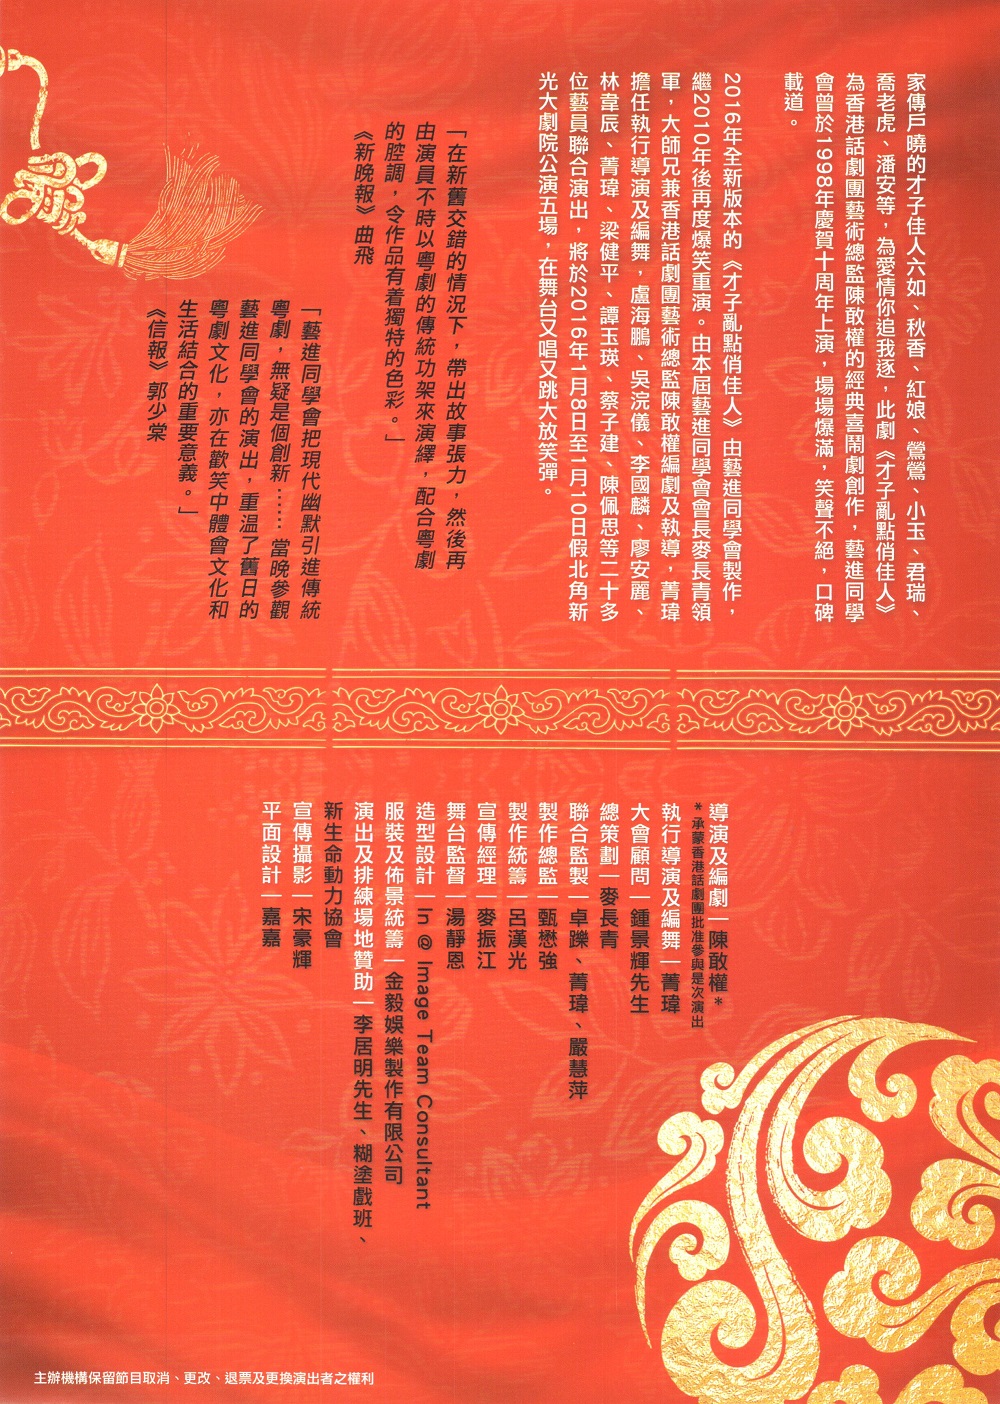 家傳戶曉的才子佳人六如、秋香、紅娘、鶯鶯、小玉、君瑞、
喬老虎、潘安等，為愛情你追我逐，此劇《才子亂點俏佳人》
為香港話劇團藝術總監陳敢權的經典喜鬧劇創作，藝進同學
會曾於1998年慶賀十周年上演，場場爆滿，笑聲不絕，口碑
載道。
2016年全新版本的《才子亂點俏佳人》由藝進同學會製作，
繼2010年後再度爆笑重演。由本屆藝進同學會會長麥長青領
軍，大師兄兼香港話劇團藝術總監陳敢權編劇及執導，菁瑋
擔任執行導演及編舞，盧海鵬、吳浣儀、李國麟、廖安麗、
林韋辰、菁瑋、梁健平、譚玉瑛、蔡子建、陳佩思等二十多
位藝員聯合演出，將於2016年1月8日至1月10日假北角新
光大劇院公演五場，在舞台又唱又跳大放笑彈。
「在新舊交錯的情況下，帶出故事張力，然後再
由演員不時以粵劇的傳統功架來演繹，配合粵劇
的腔調，令作品有着獨特的色彩。」
《新晚報》曲飛
「藝進同學會把現代幽默引進傳統
粵劇，無疑是個創新……當晚參觀
藝進同學會的演出，重溫了舊日的
粵劇文化，亦在歡笑中體會文化和
生活結合的重要意義。」
《信報》郭少棠
導演及編劇｜陳敢權*
*承蒙香港話劇團批准參與是次演出
執行導演及編舞｜菁瑋
大會顧問｜鍾景輝先生
總策劃｜麥長青
聯合監製｜卓躒、菁瑋、嚴慧萍
製作總監｜甄懋強
製作統籌｜呂漢光
宣傳經理｜麥振江
舞台監督｜湯靜恩
造型設計｜in @ Image Team Consultant
服裝及佈景統籌｜金毅娛樂製作有限公司
演出及排練場地贊助｜李居明先生、糊塗戲班、
新生命動力協會
宣傳攝影｜宋豪輝
平面設計｜嘉嘉
主辦機構保留節目取消、更改、退票及更換演出者之權利